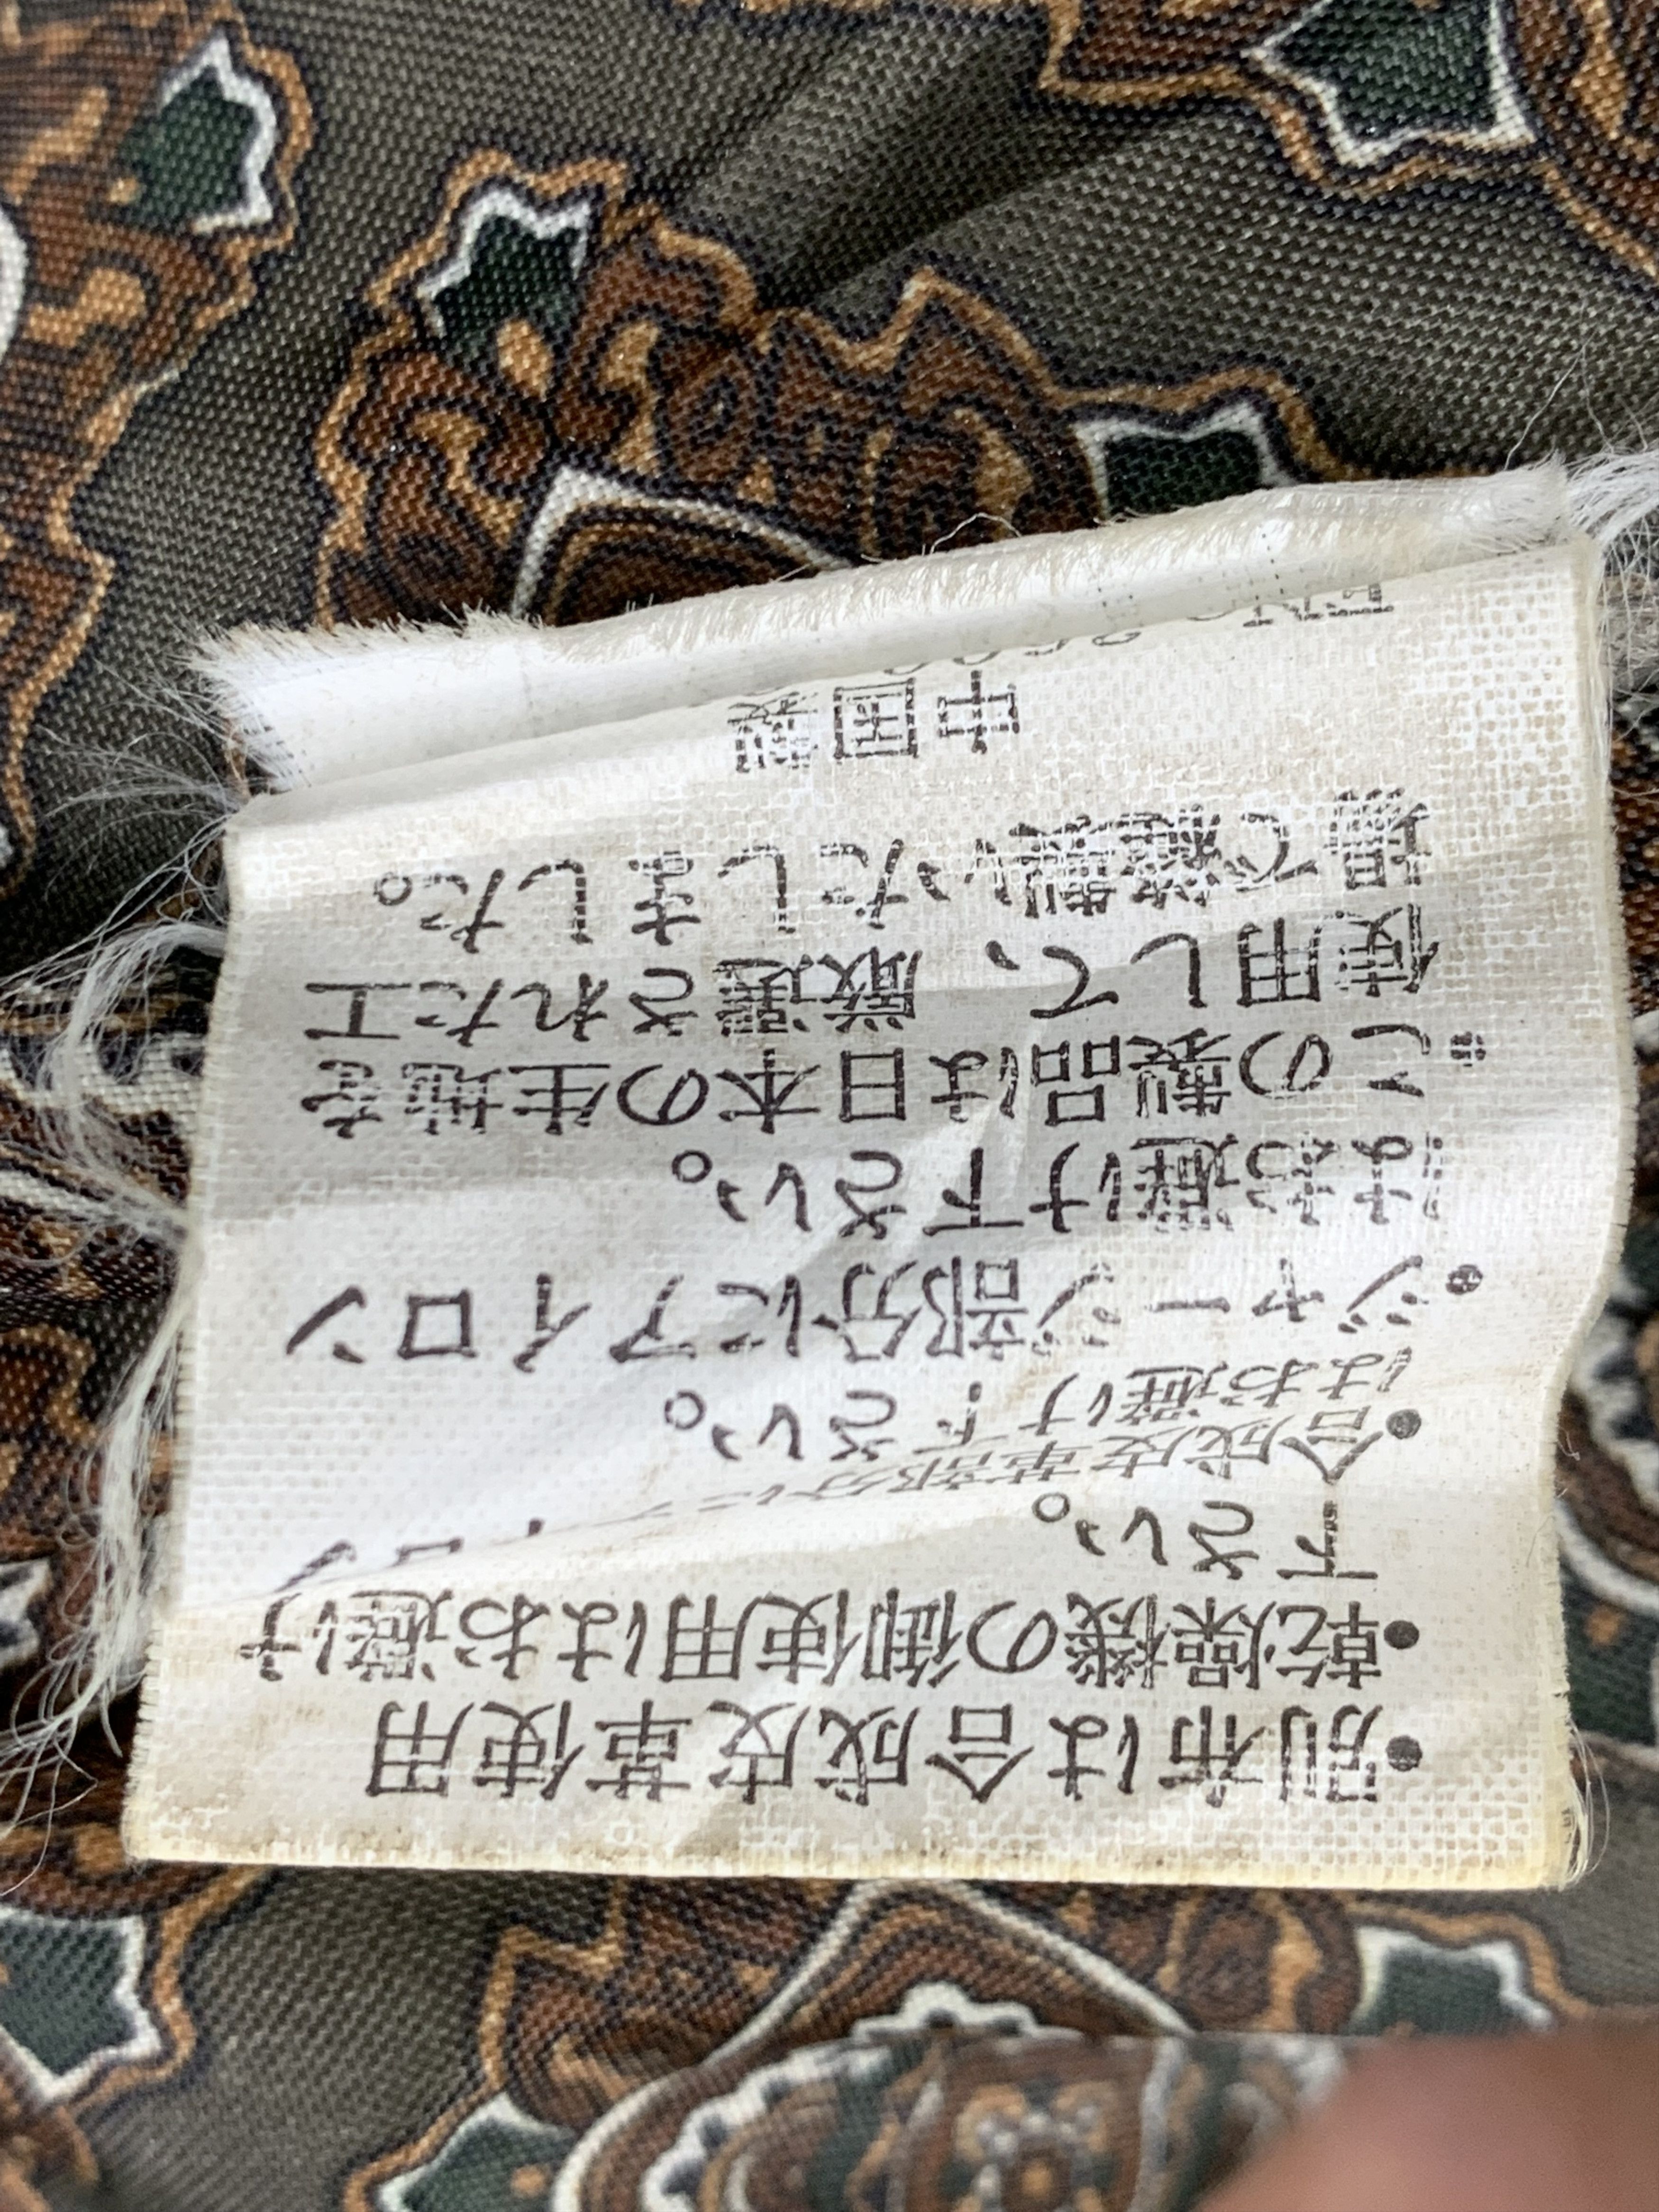 •別布は合成皮革使用
•乾燥機の御使用はお避け
下さい。
•合成皮革部分にアイロン
はお避け下さい。
•ジャージ部分にアイロン
はお避け下さい。
※この製品は日本の生地を
使用して、厳選された工
場で縫製いたしました。
中国製